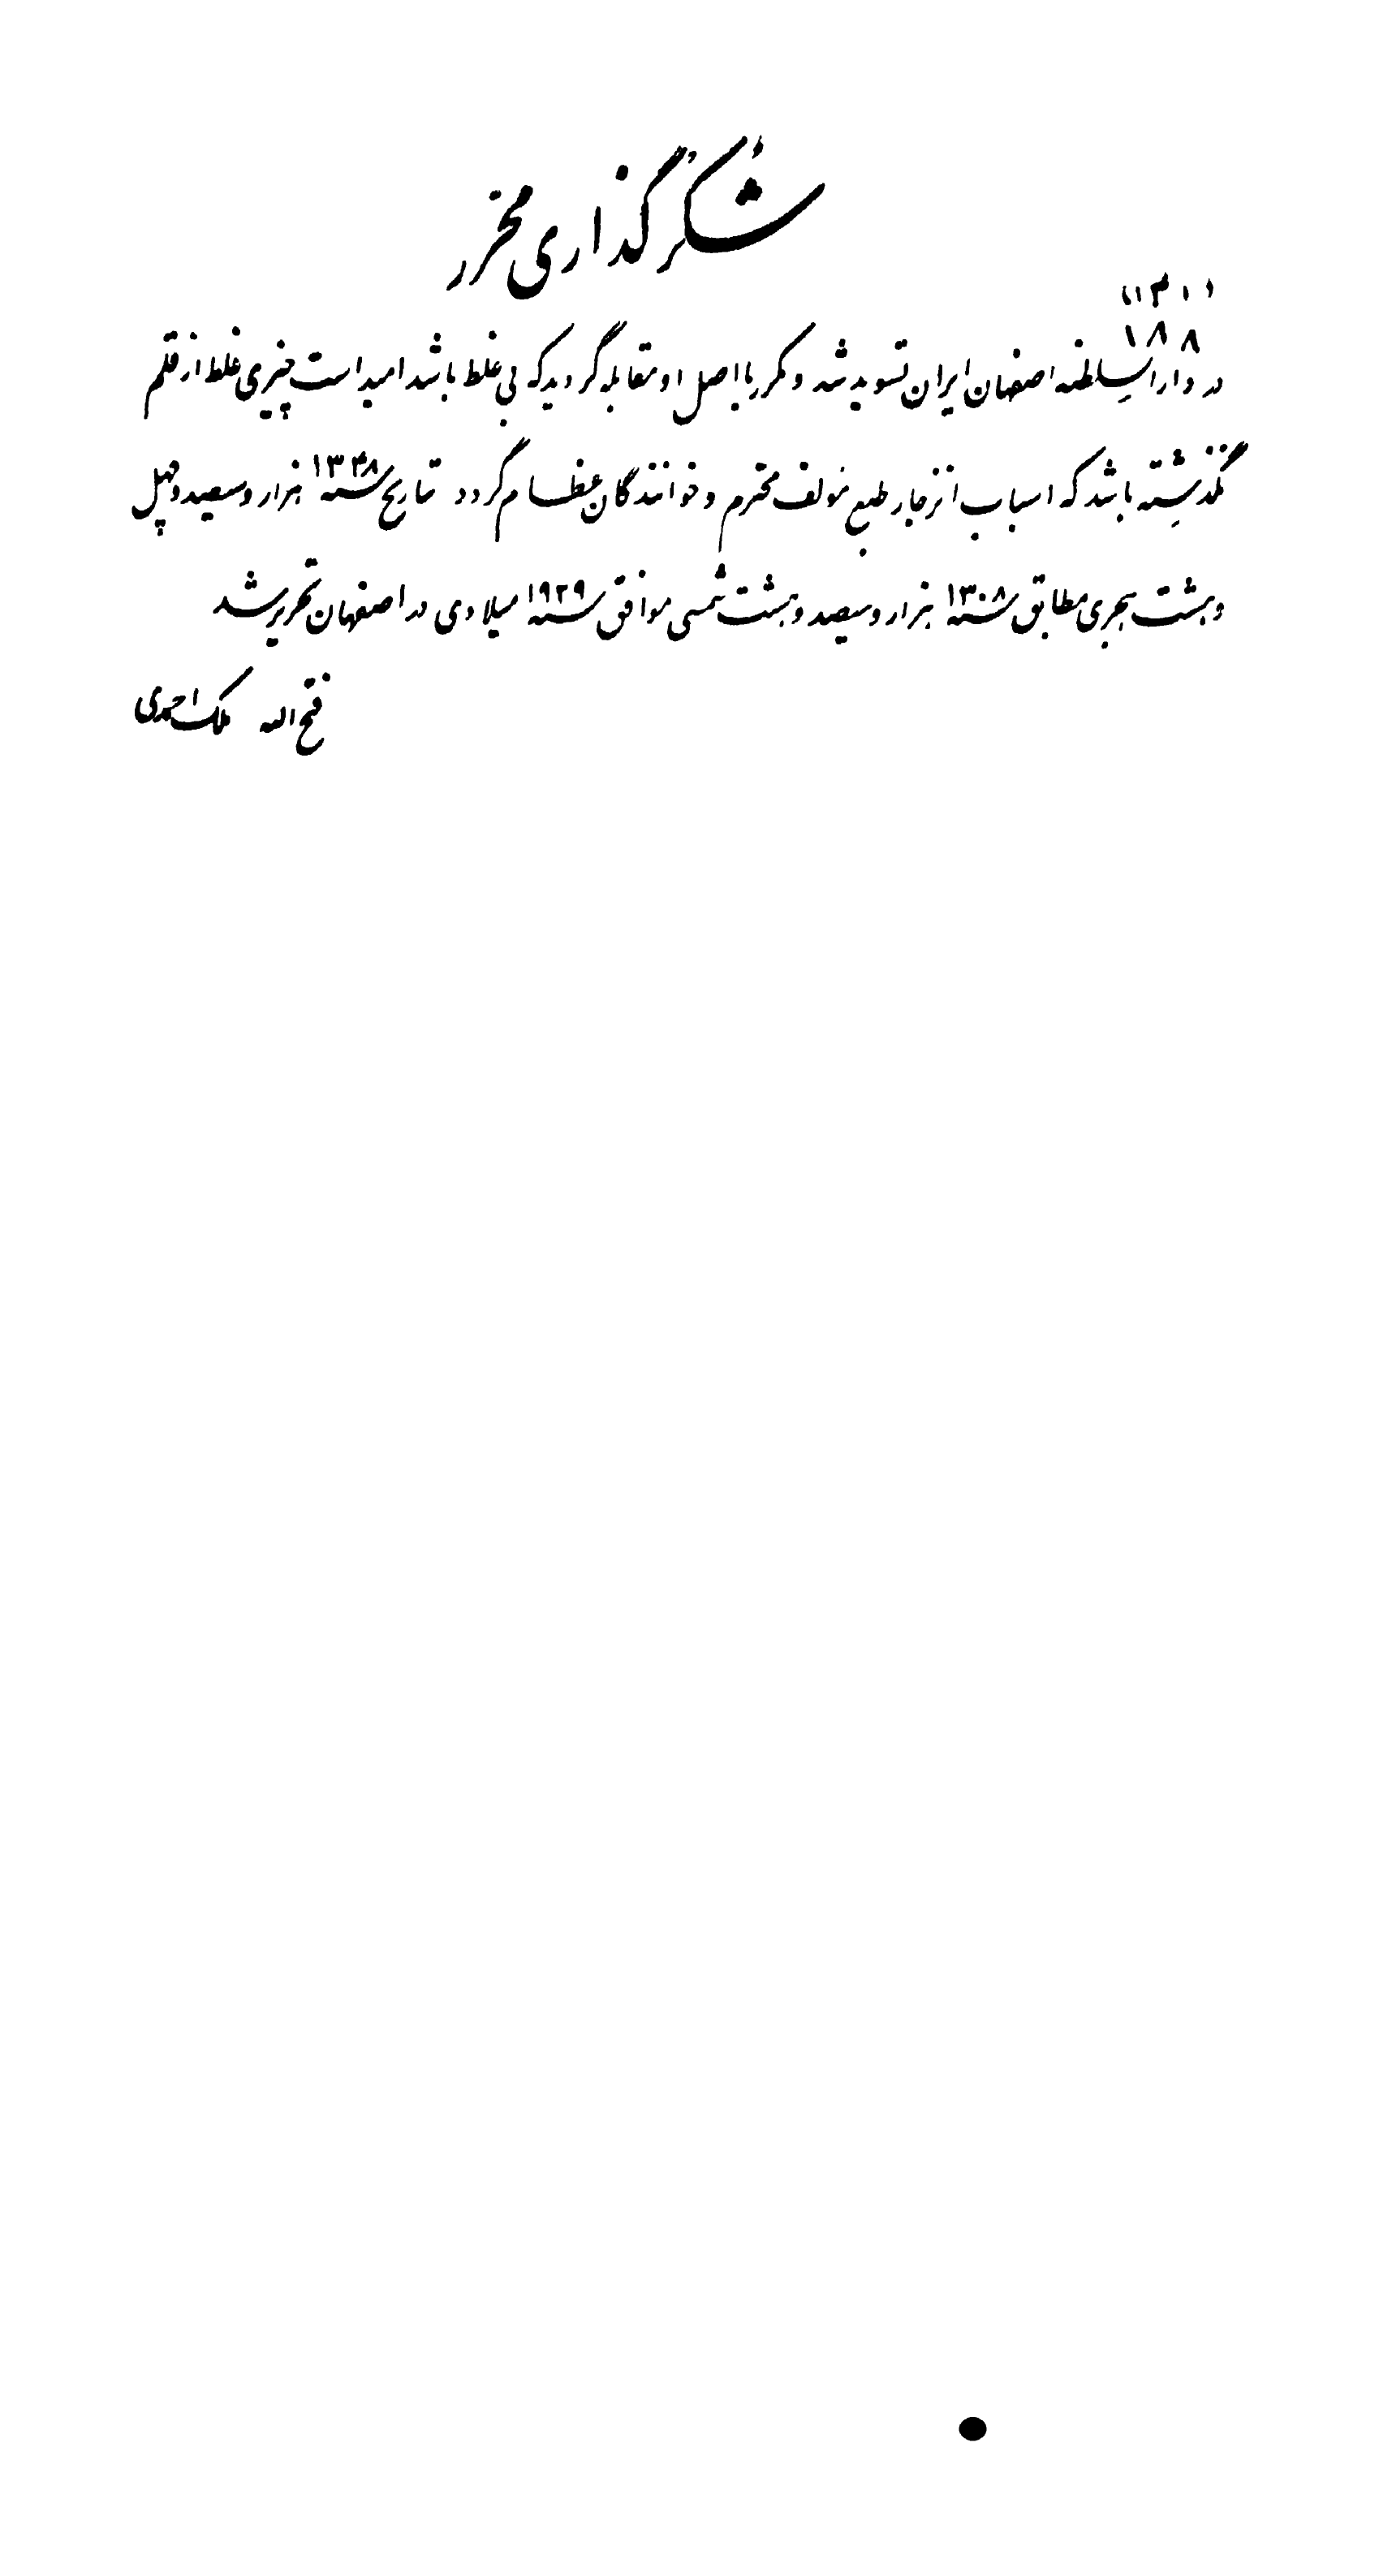 شکرگذاری محرر
۱۸۸
در دارالسلطنه اصفهان ایران تسوید شد و مکرر با اصل او مقابله گردید که بی غلط باشد امید است چیزی غلط از قلم
نگذشته باشد که اسباب انزجار طبع مؤلف محترم و خوانندگان عظام گردد تاریخ سنه ۱۳۴۸ هزار و سیصد و چهل
و هشت هجری مطابق سنه ۱۳۰۸ هزار و سیصد و هشت شمسی موافق سنه ۱۹۲۹ میلادی در اصفهان تحریر شد
فتح الله ملک احمدی